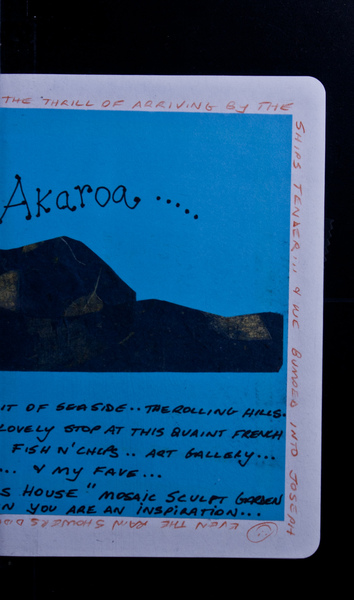 THE THRILL OF ARRIVING BY THE
SHIPS TENDER!!! & WE BUMPED INTO JOSEAH
Akaroa .....
IT OF SEASIDE.. THE ROLLING HILLS.
LOVELY STOP AT THIS QUAINT FRENCH
FISH N' CHEPS.. ART GALLERY...
... & MY FAVE...
S HOUSE" MOSAIC SCULPT GARDEN
N YOU ARE AN INSPIRATION...
EVEN THE RAIN SHOWERS